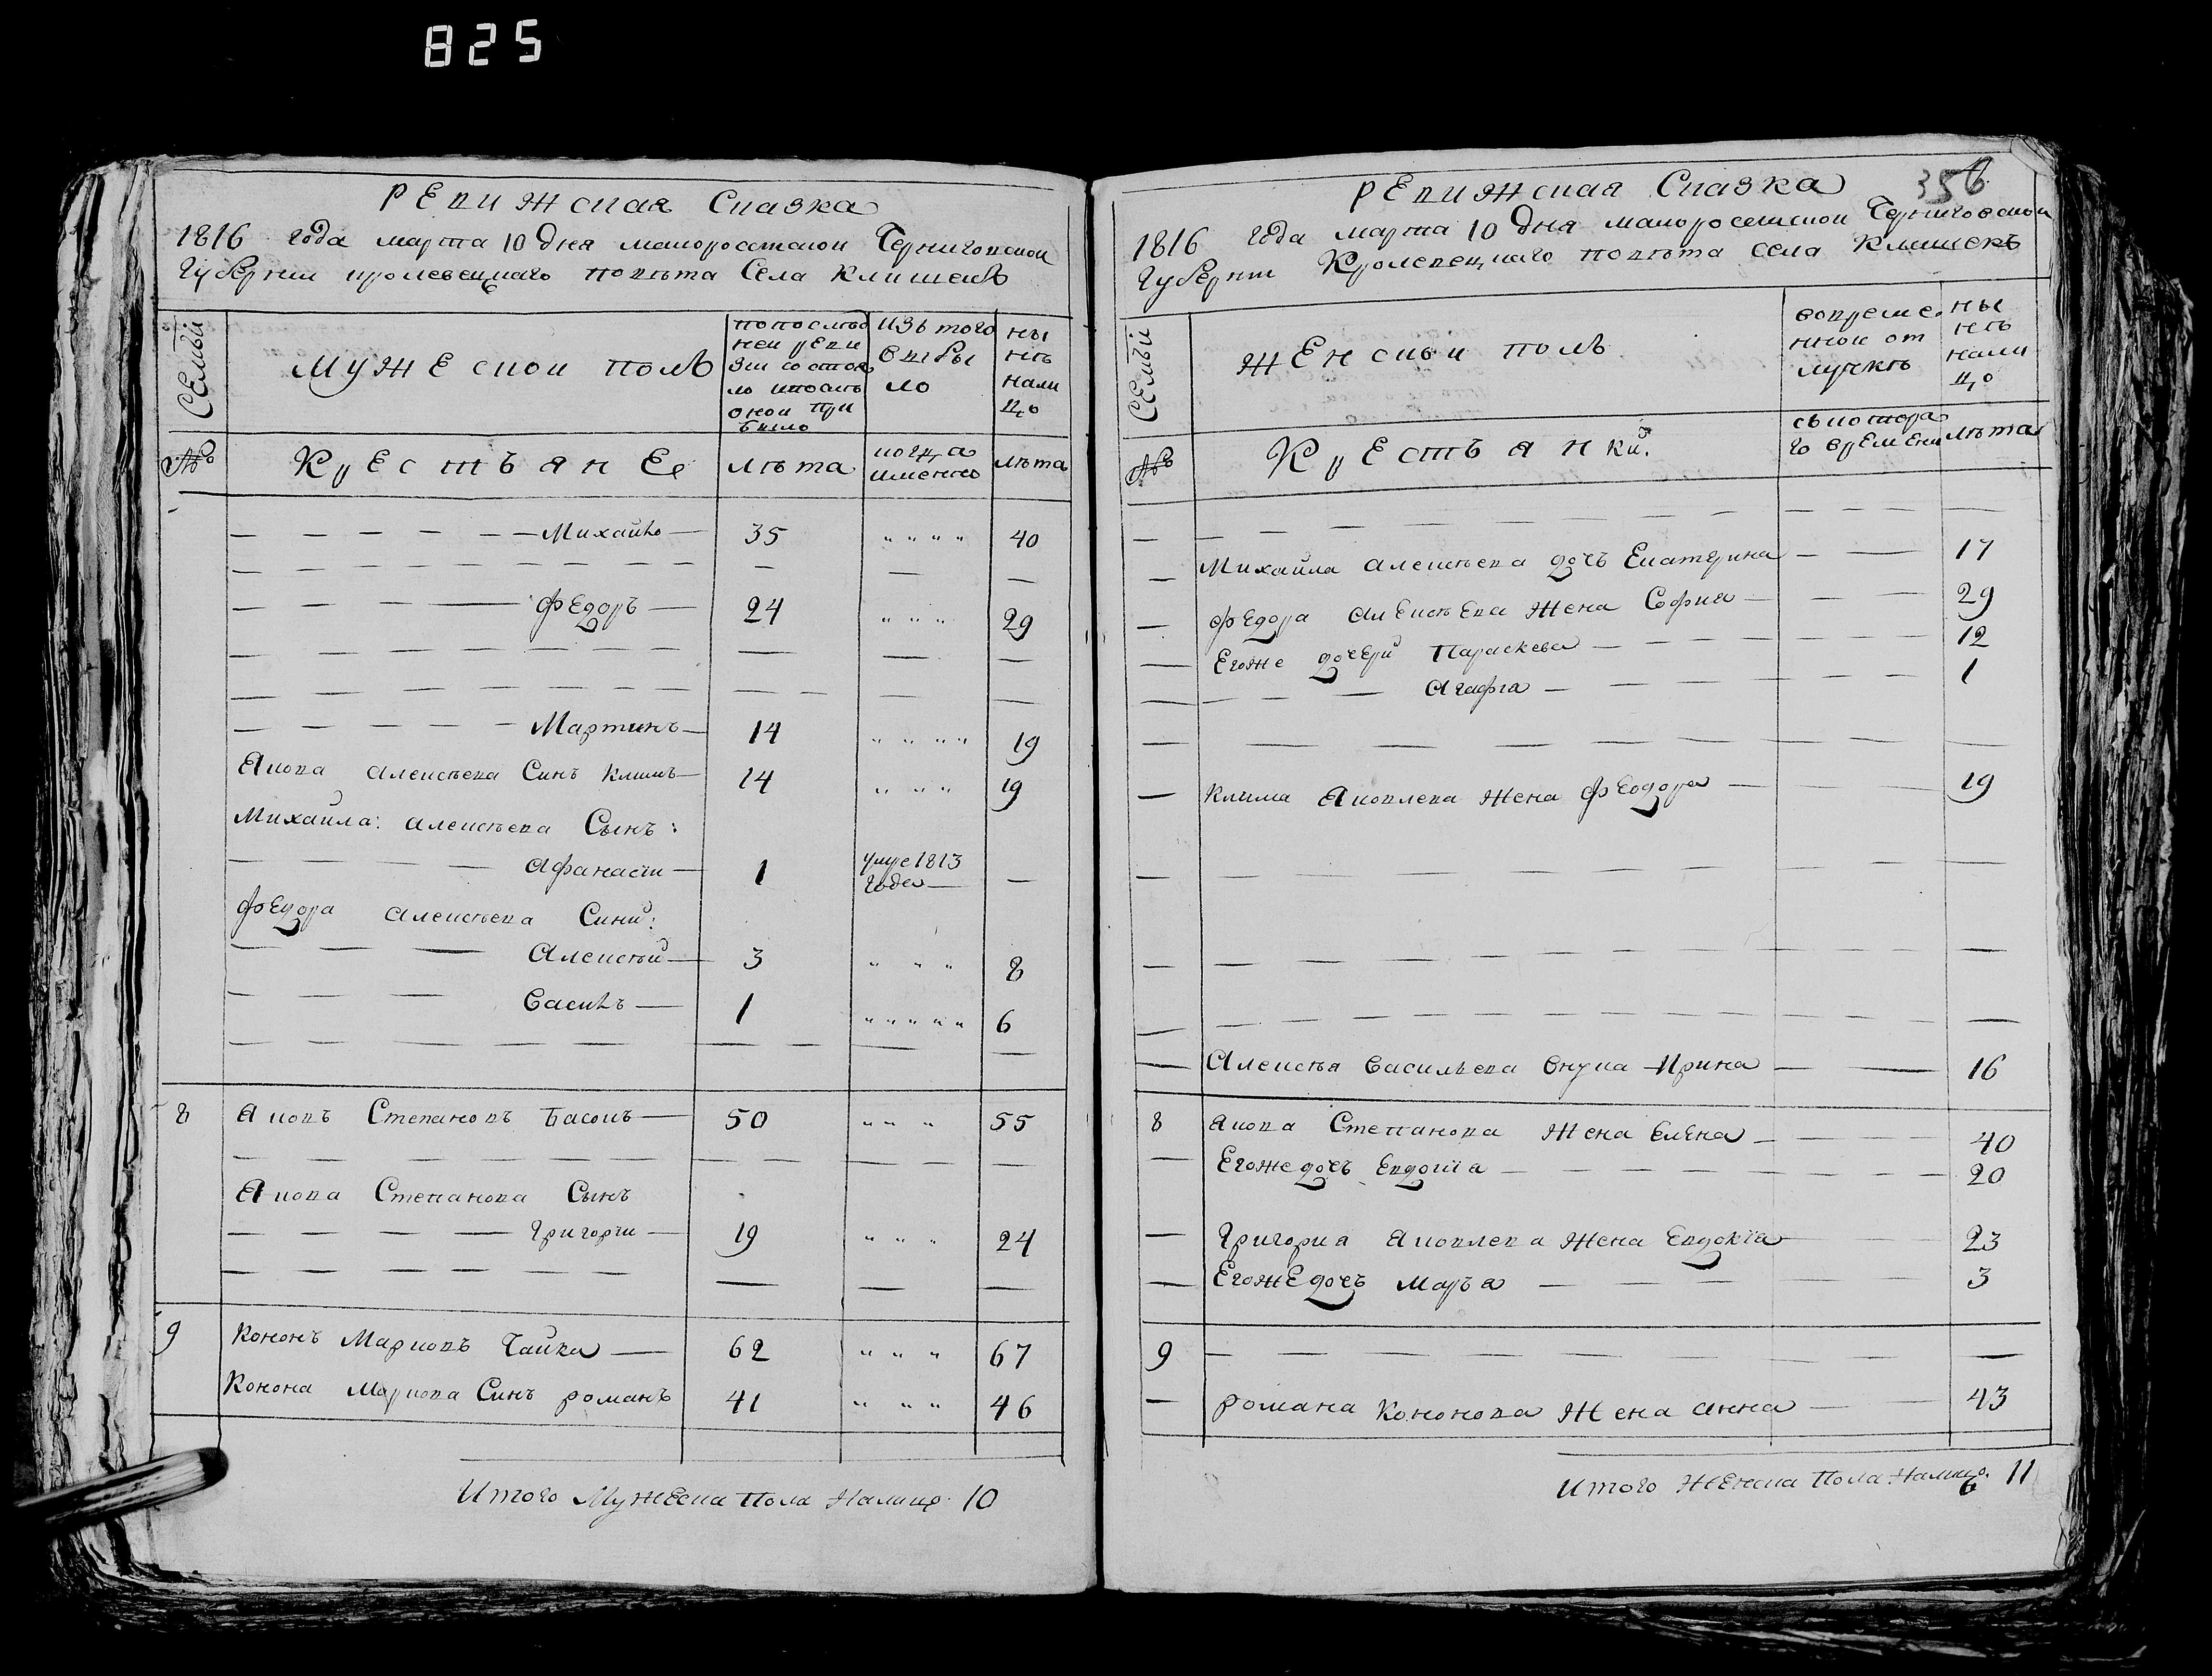 825
РЕВИЖСКАЯ СКАЗКА
1816 года марта 10 дня малоросетской Черниговской
Губернии кролевецкаго повѣта Села Клишекъ
СЕмьи
МУЖЕСКОИ ПОЛЪ
попослѣд
ней реви
зіи состоя
ло ипослѣ
оной при
было
изъ того
выбы
ло
ны
нѣ
нали
цо
№
КрЕстъянЕ
лѣта
когда
именно
лѣта
Михайло 35 40
ФЕдоръ 24 29
Мартинъ 14 19
Якова Алексѣева Синъ Климъ 14 19
Михайла: Алексѣева Сынъ:
Афанасіи 1 умре 1813
года
ФЕдора Алексѣева Сини:
Алексѣй 3 8
Василъ 1 6
8 Яковъ Степановъ Басокъ 50 55
Якова Степанова Сынъ
Григоріи 19 24
9 Кононъ Марковъ Чайка 62 67
Конона Маркова Синъ романъ 41 46
Итого МужЕска Пола Налицо 10
356
РЕВИЖСКАЯ СКАЗКА
1816 года марта 10 дня малоросетской Черниговской
Губерніи Кролевецкаго повѣта села Клишекъ
СЕмьи
ЖЕНСКИЙ ПОЛЪ
вовремен
ной от
лучкѣ
ны
нѣ
нали
цо
№
КрЕстъянки
съкотора
го врЕмЕни
лѣта
Михайла Алексѣева дочъ Екатерина 17
ФЕдора АлЕксѣЕва Жена София 29
Егоже дочЕри Параскева 12
Агафіа 1
Клима Яковлева Жена ФЕодора 19
Алексѣя Васильева Внука Ирина 16
8 Якова Степанова Жена ЕлЕна 40
Егоже дочъ Евдокіа 20
Григориа Яковлева Жена Евдокіа 23
ЕгожЕ дочъ Маръа 3
9
Романа Кононова Жена Анна 43
Итого ЖЕнска Пола Налицо. 11